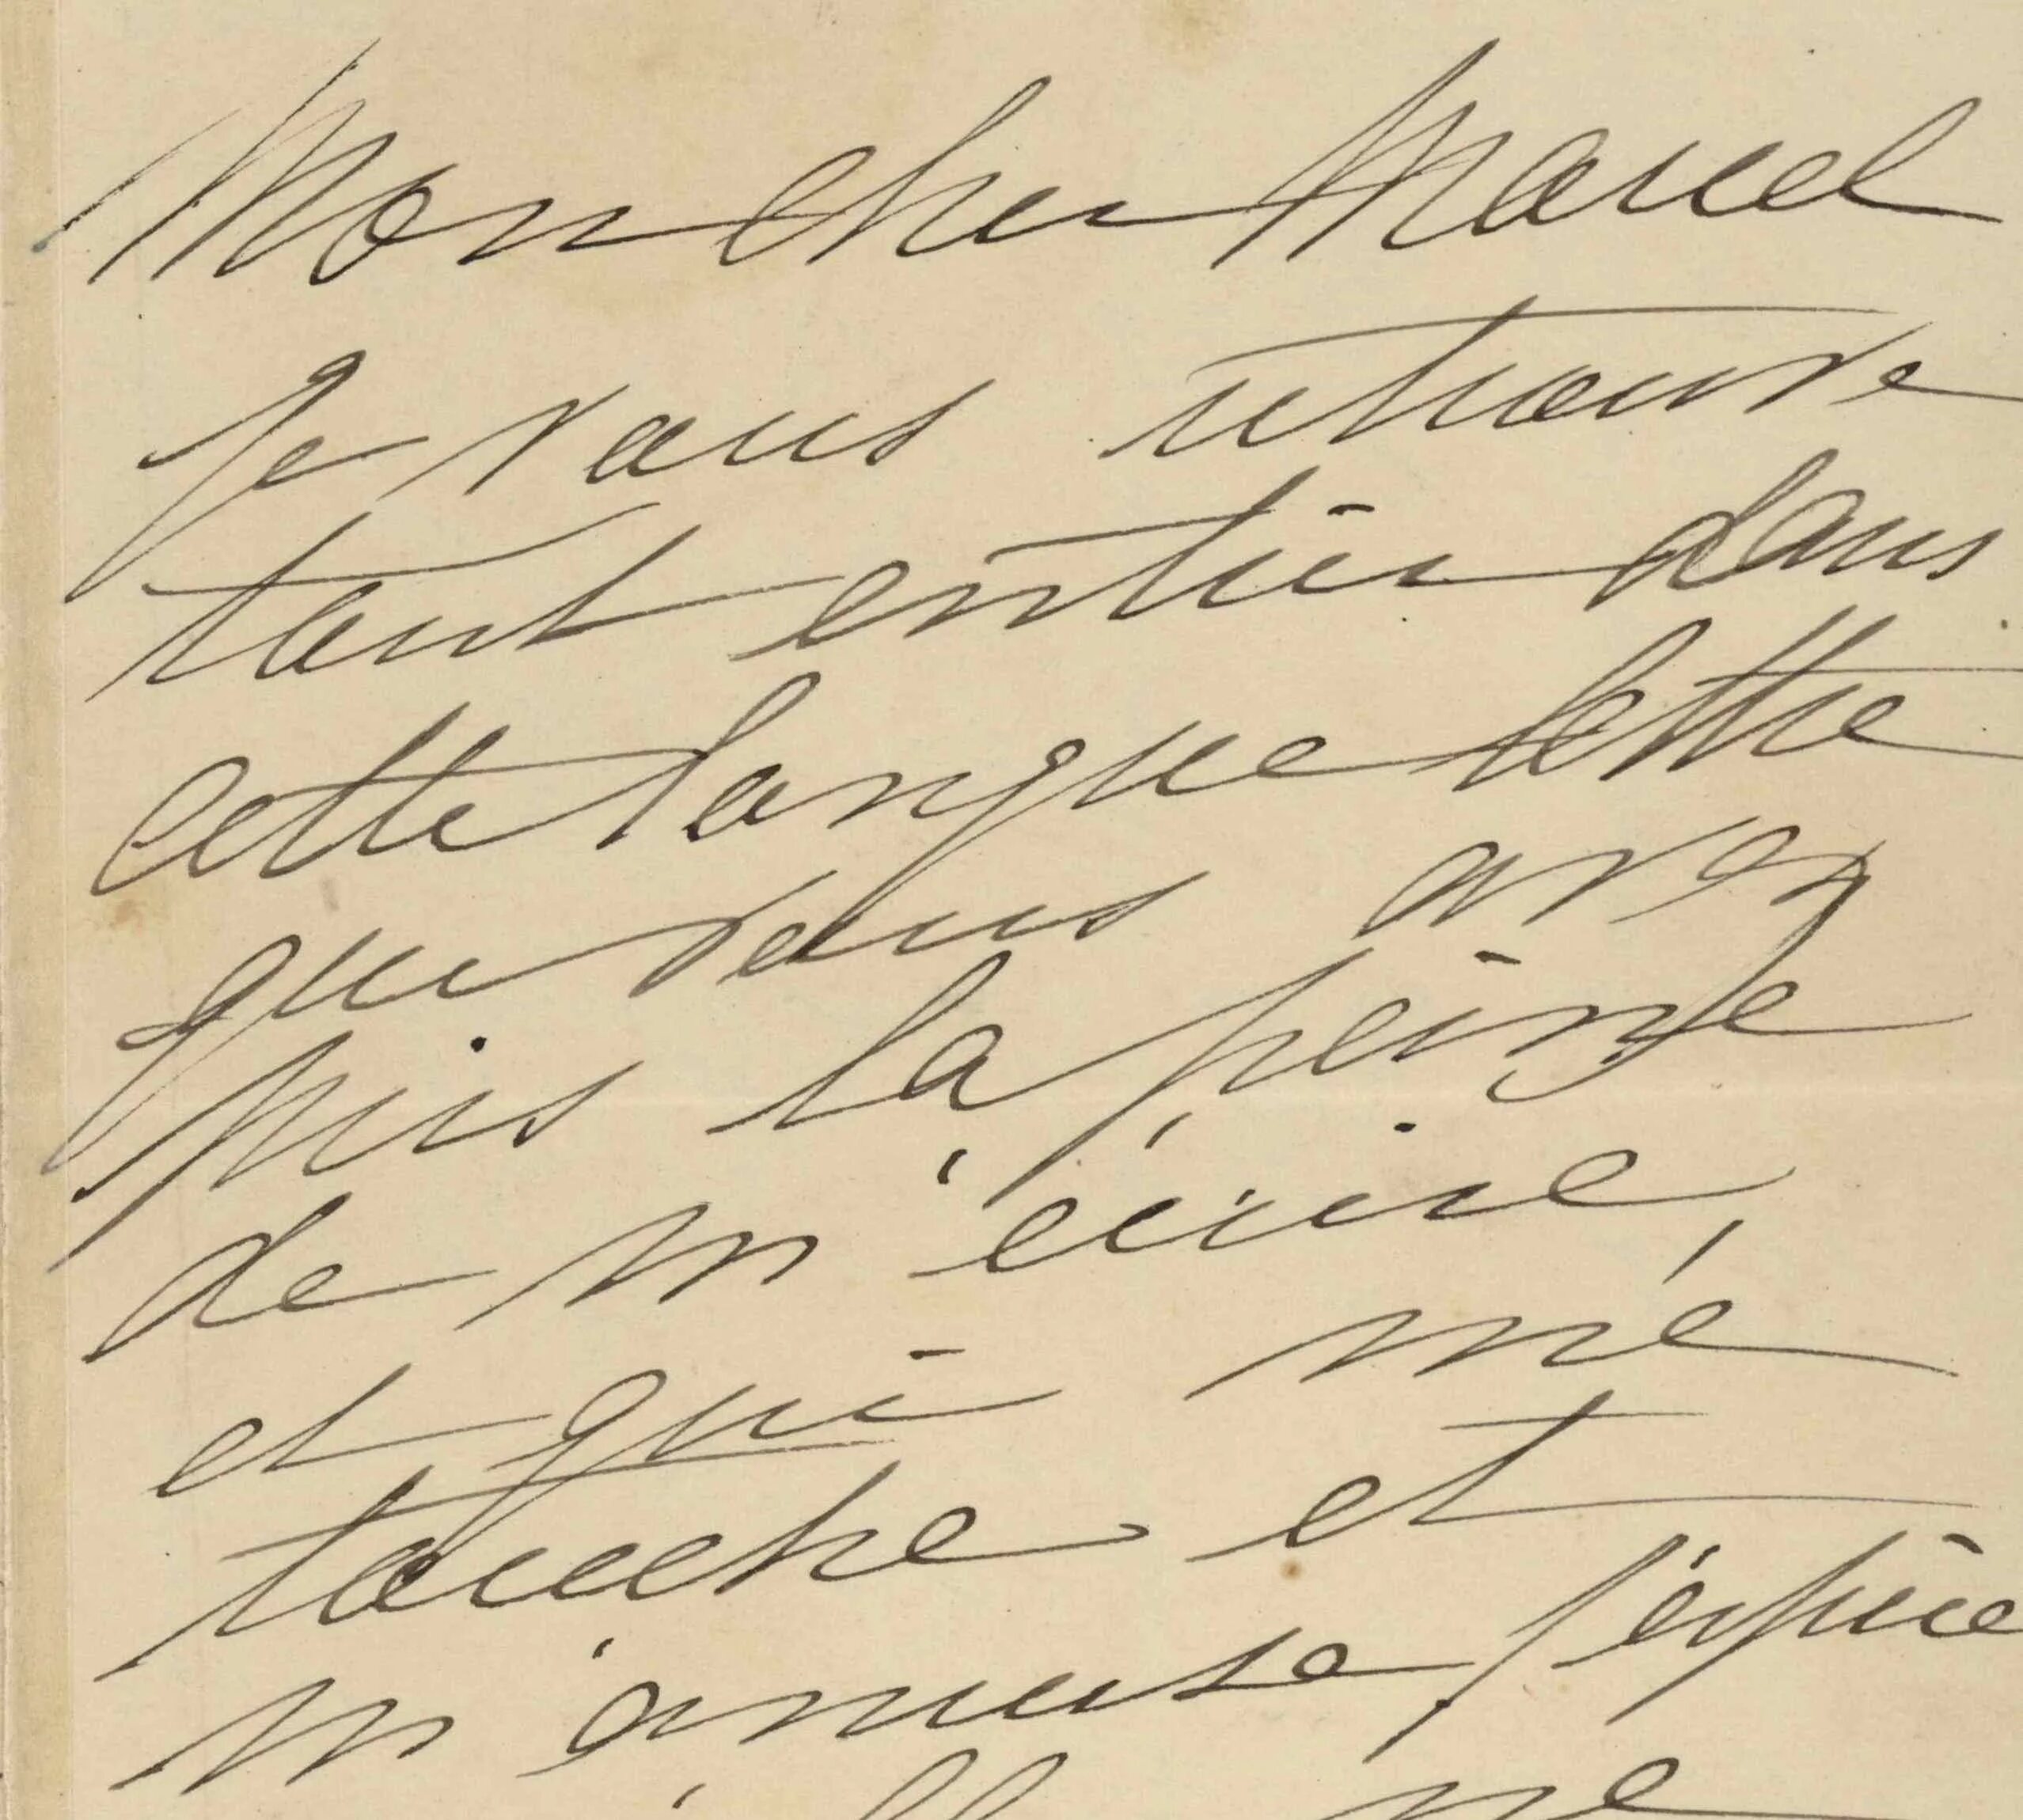 Mon cher Marcel
Je vous retrouve
tout entier dans
cette longue lettre
que vous avez
pris la peine
de m'écrire,
et qui me
touche et
m'amuse, j'espère
ne